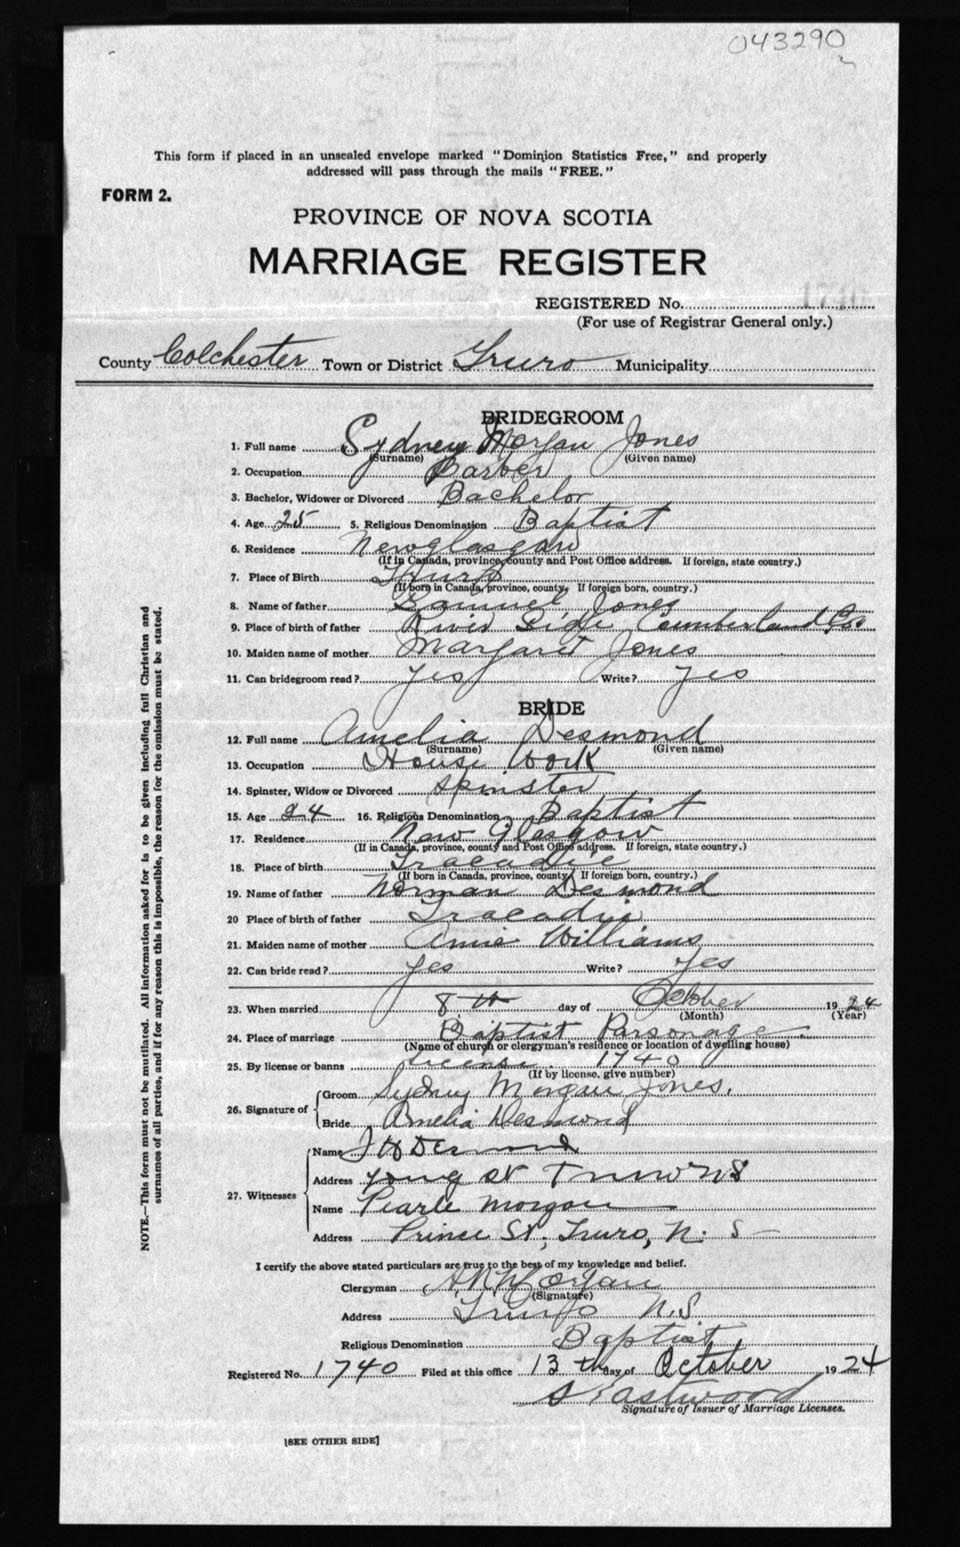 043290
This form if placed in an unsealed envelope marked "Dominion Statistics Free," and properly
addressed will pass through the mails "FREE."
FORM 2.
PROVINCE OF NOVA SCOTIA
MARRIAGE REGISTER
REGISTERED No. 1740
(For use of Registrar General only.)
County Colchester Town or District Truro Municipality
BRIDEGROOM
1. Full name Sydney Morgan Jones
(Surname) (Given name)
2. Occupation Barber
3. Bachelor, Widower or Divorced Bachelor
4. Age 25 5. Religious Denomination Baptist
6. Residence New Glasgow
(If in Canada, province, county and Post Office address. If foreign, state country.)
7. Place of Birth Truro
(If born in Canada, province, county. If foreign born, country.)
8. Name of father Samuel Jones
9. Place of birth of father River Side Cumberland Co
10. Maiden name of mother Margaret Jones
11. Can bridegroom read? Yes Write? yes
BRIDE
12. Full name Amelia Desmond
(Surname) (Given name)
13. Occupation House Work
14. Spinster, Widow or Divorced Spinster
15. Age 24 16. Religious Denomination Baptist
17. Residence New Glasgow
(If in Canada, province, county and Post Office address. If foreign, state country.)
18. Place of birth Tracadie
(If born in Canada, province, county. If foreign born, country.)
19. Name of father Norman Desmond
20 Place of birth of father Tracadie
21. Maiden name of mother Annie Williams
22. Can bride read? yes Write? yes
23. When married 8th day of October 1924
(Month) (Year)
24. Place of marriage Baptist Parsonage
(Name of church or clergyman's residence or location of dwelling house)
25. By license or banns license 1740
(If by license, give number)
26. Signature of
Groom Sydney Morgan Jones.
Bride Amelia Desmond
27. Witnesses
Name Desmond
Address Young St Truro NS
Name Pearle Morgan
Address Prince St, Truro, N. S
I certify the above stated particulars are true to the best of my knowledge and belief.
Clergyman Morgan
(Signature)
Address Truro N.S
Religious Denomination Baptist
Registered No. 1740 Filed at this office 13th day of October 1924
S Eastwood
Signature of Issuer of Marriage Licenses.
[SEE OTHER SIDE]
NOTE.—This form must not be mutilated. All information asked for is to be given including full Christian and
surnames of all parties, and if for any reason this is impossible, the reason for the omission must be stated.